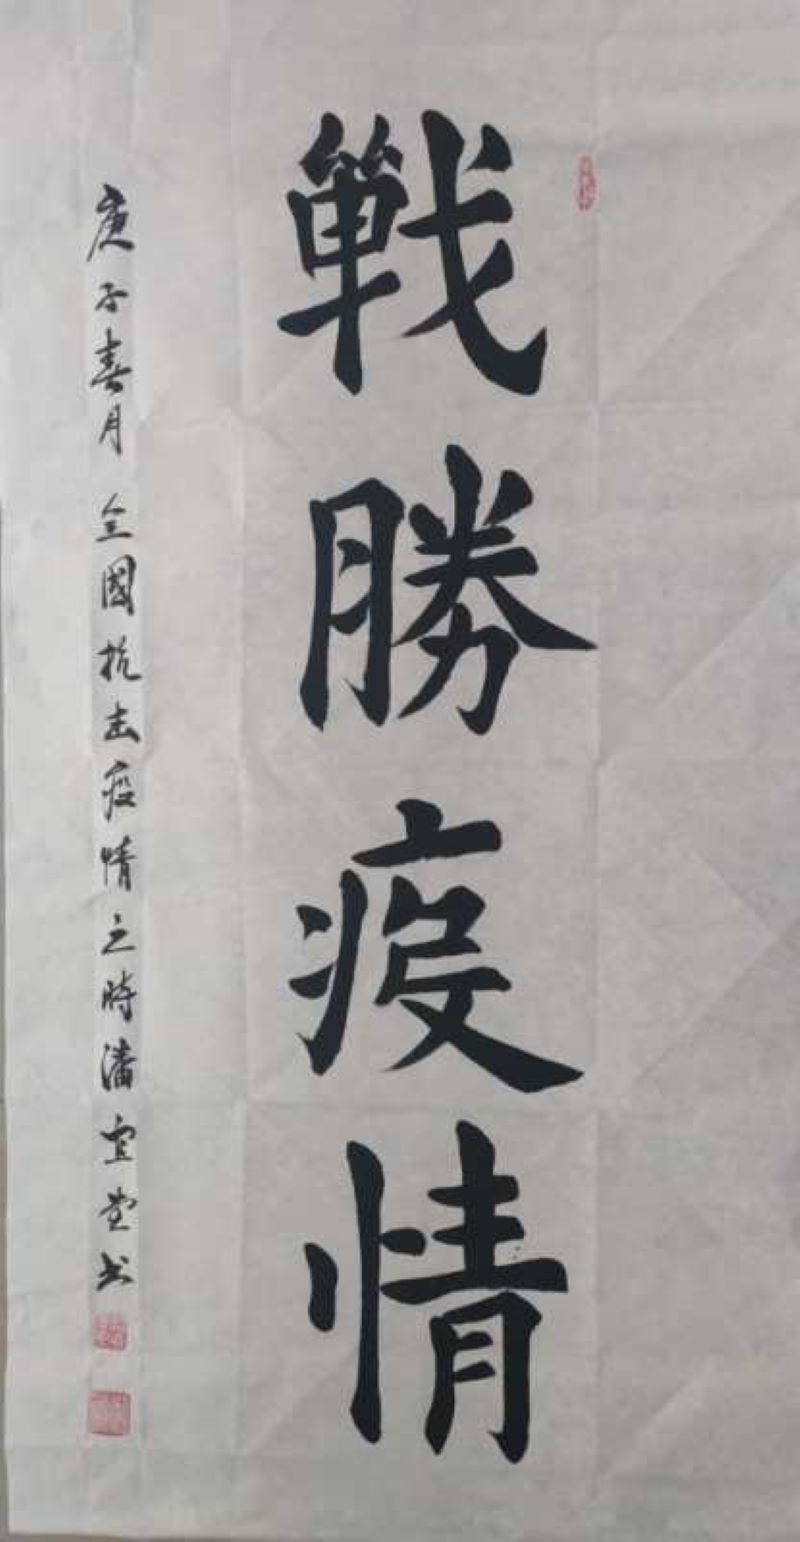 戰勝疫情
庚子春月 全國抗击疫情之時潘宜堂书